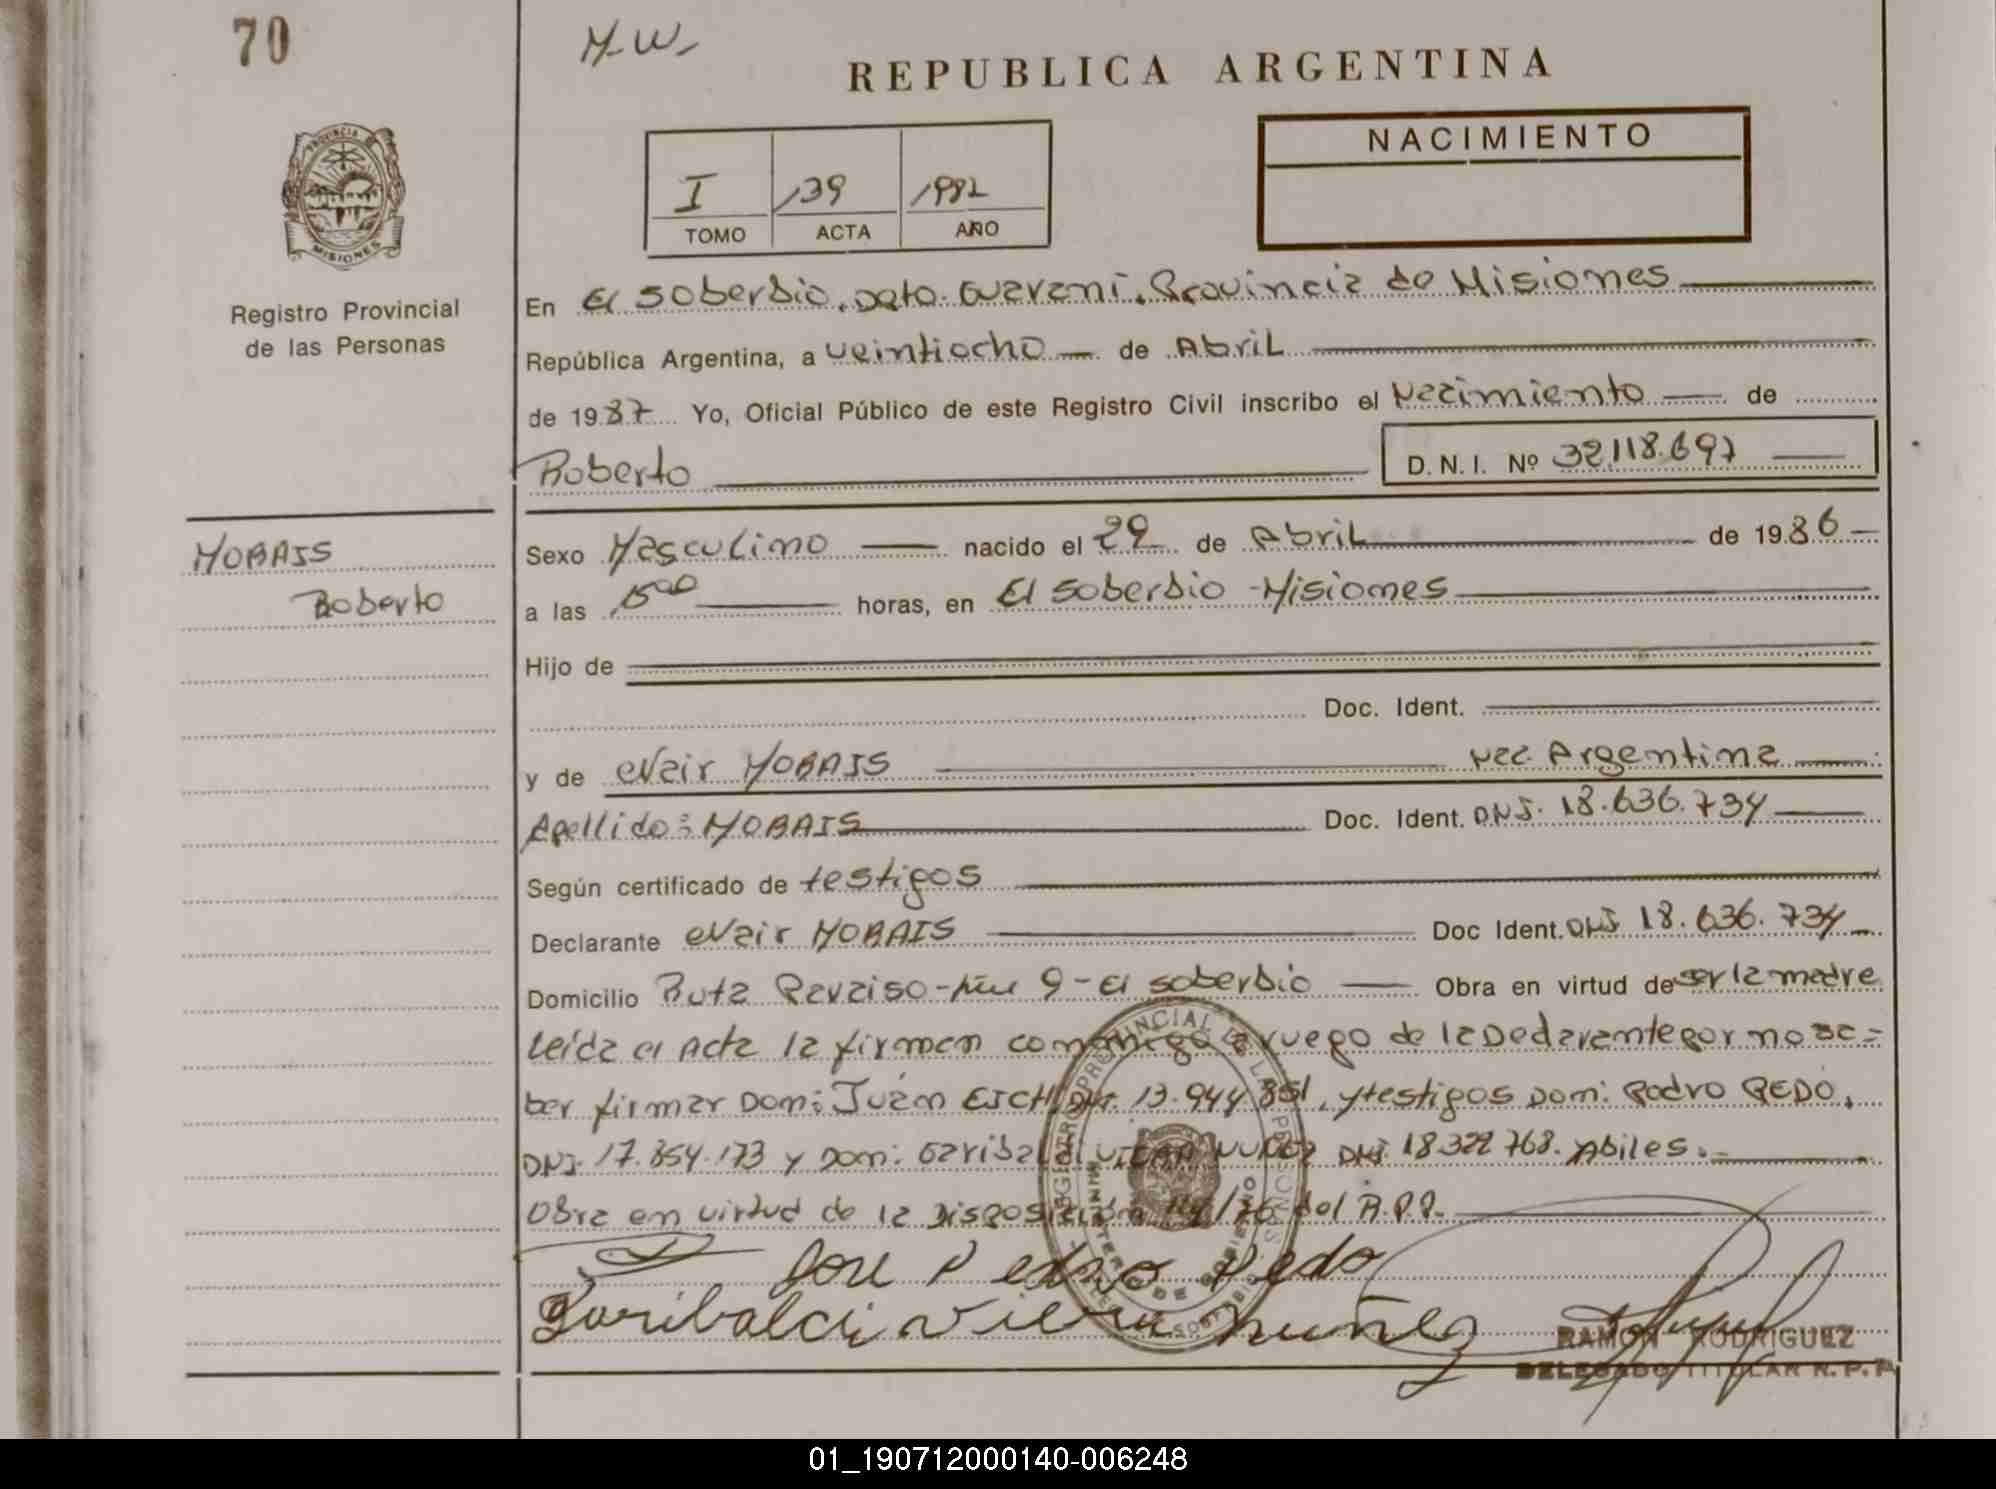 70
M-W-
REPUBLICA ARGENTINA
NACIMIENTO
I 139 1987
TOMO ACTA AÑO
PROVINCIA DE
MISIONES
Registro Provincial
de las Personas
En El Soberbio. Dpto. Guarani. Provincia de Misiones
República Argentina, a veintiocho — de Abril
de 1987 Yo, Oficial Público de este Registro Civil inscribo el Nacimiento — de
Roberto
D.N.I. Nº 32.118.697
MORAIS
Roberto
Sexo Masculino — nacido el 29 de Abril de 1986 —
a las 15 00 horas, en El Soberbio - Misiones
Hijo de
Doc. Ident.
y de Nair MORAIS Nac. Argentina
Apellido: MORAIS Doc. Ident. DNI. 18.636.734
Según certificado de testigos
Declarante Nair MORAIS Doc Ident. DNI 18.636.734
Domicilio Ruta Paraiso - 9 - El Soberbio — Obra en virtud de ser la madre
Leída el Acta la firman conmigo a ruego de la Declarante por no sa=
ber firmar Don: Juan 13.944.851, y testigos Don: Pedro PEDO,
DNI. 17.854.173 y Don: Garibaldi VIERA NUÑEZ DNI 18.322.768. Abiles.
Obra en virtud de la Disposición /76 del R.P.P.
José Pedro Pedo
Garibaldi Viera Nuñez
REGISTRO PROVINCIAL DE LAS PERSONAS
MINISTERIO DE GOBIERNO
EL SOBERBIO
RAMON RODRIGUEZ
DELEGADO TITULAR R.P.P.
01_190712000140-006248